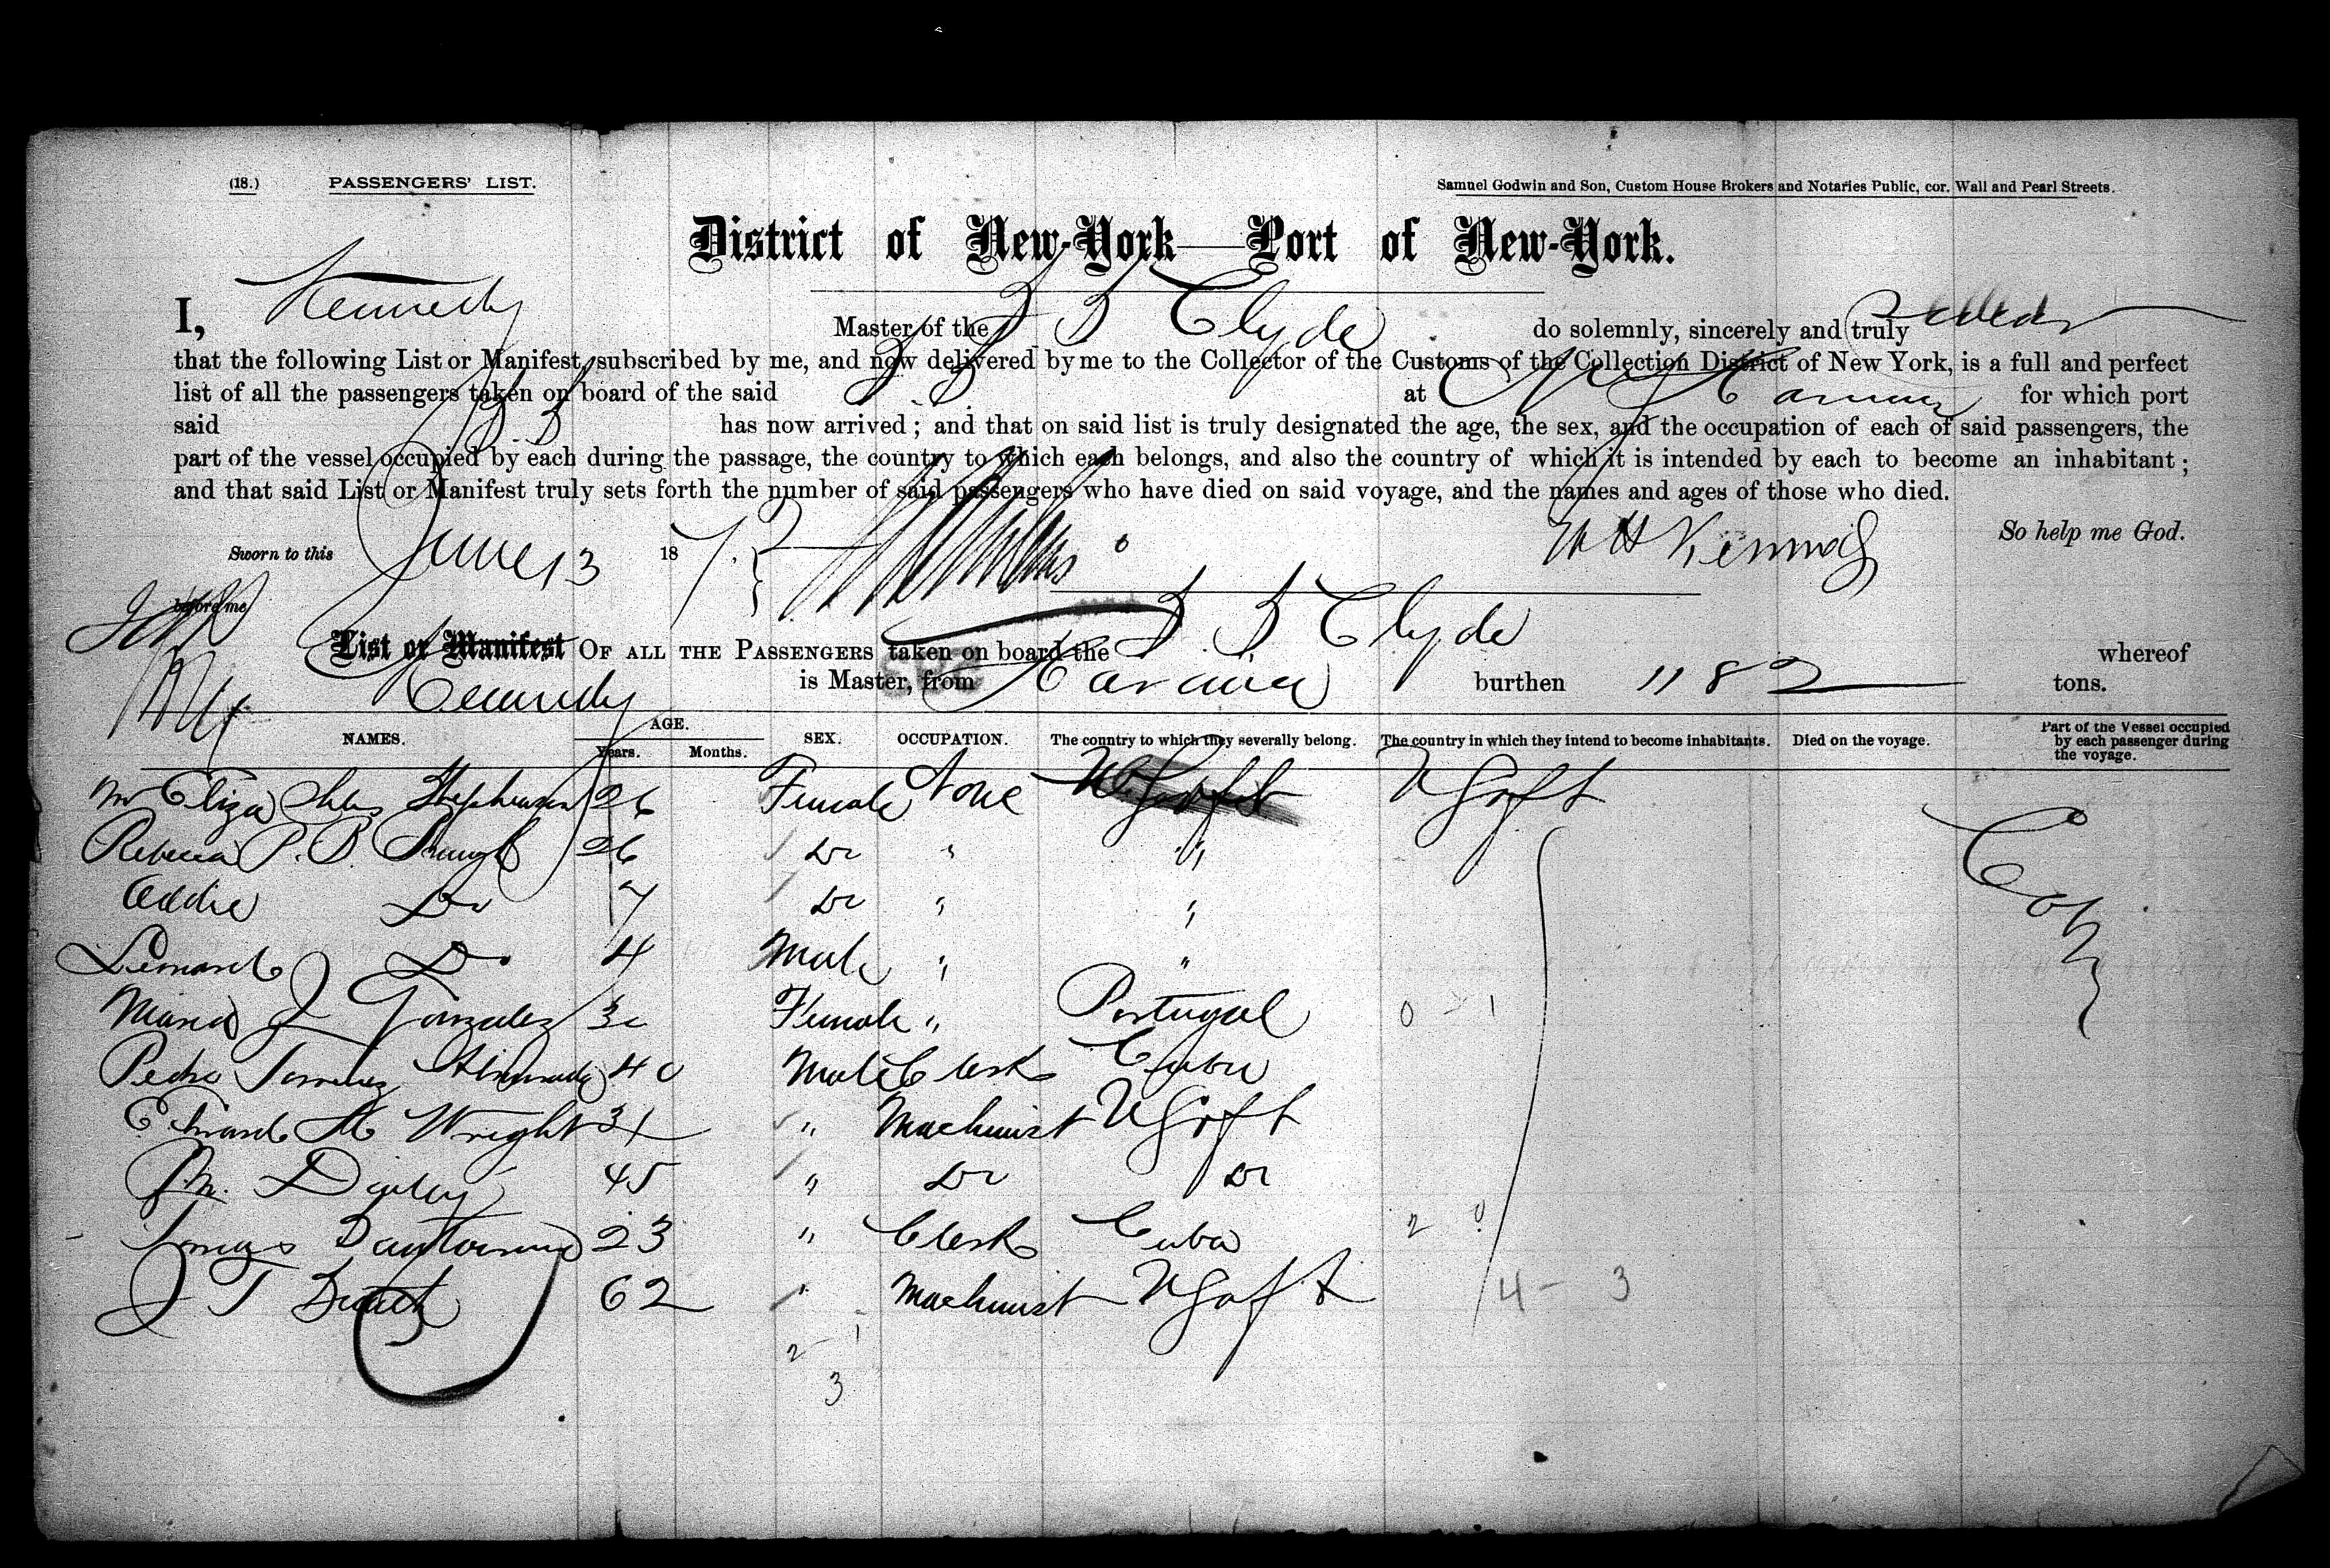 (18.) PASSENGERS' LIST. Samuel Godwin and Son, Custom House Brokers and Notaries Public, cor. Wall and Pearl Streets.
District of New-York—Port of New-York.
I, Kennedy Master of the S S Clyde do solemnly, sincerely and truly
that the following List or Manifest, subscribed by me, and now delivered by me to the Collector of the Customs of the Collection District of New York, is a full and perfect
list of all the passengers taken on board of the said S S at for which port
said S S has now arrived; and that on said list is truly designated the age, the sex, and the occupation of each of said passengers, the
part of the vessel occupied by each during the passage, the country to which each belongs, and also the country of which it is intended by each to become an inhabitant;
and that said List or Manifest truly sets forth the number of said passengers who have died on said voyage, and the names and ages of those who died.
Sworn to this June 13 18 W H Kennedy So help me God.
before me
List or Manifest OF ALL THE PASSENGERS taken on board the S S Clyde whereof
Kennedy is Master, from Havana burthen 1182 tons.
NAMES. AGE. Years. Months. SEX. OCCUPATION. The country to which they severally belong. The country in which they intend to become inhabitants. Died on the voyage. Part of the Vessel occupied by each passenger during the voyage.
Eliza Stephenson 26 Female None
Rebecca P. B. 26 Do " "
Addie Do 7 Do " "
Leonard Do 4 Male " "
Maria J Gonzalez 30 Female " Portugal 0 1
Pedro 40 Male Clerk Cuba
Edward H Wright 31 " Machinist
45 " Do Do
23 " Clerk Cuba 2 0
J T 62 " Machinist 4 - 3
2 - 1
3